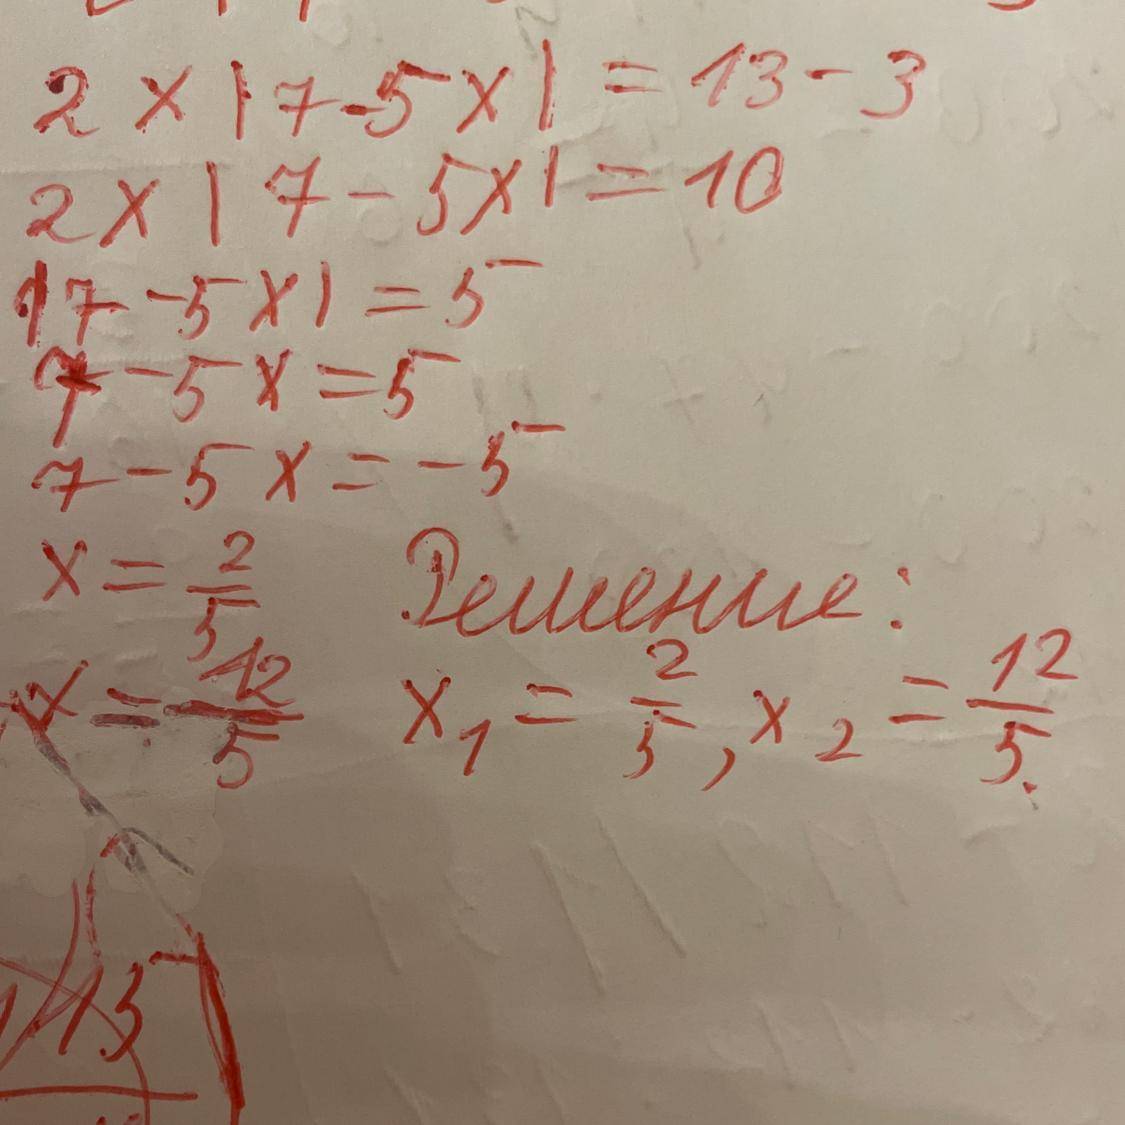 2 x |7-5x| = 13-3
2 x |7-5x| = 10
|7-5x| = 5
7-5x = 5
7-5x = -5
x = 2/5
x = 12/5
Решение:
x₁ = 2/5, x₂ = 12/5.
13